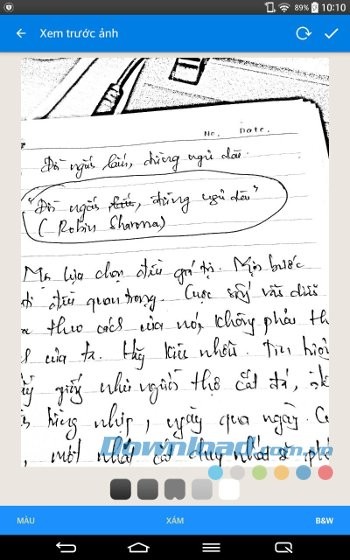 89% 10:10
Xem trước ảnh
No. Date.
Đời ngắn lắm, đừng ngủ dài
"Đời ngắn lắm, đừng ngủ dài"
(- Robin Sharma)
lựa chọn đều giá trị. Mọi bước
đi đều quan trọng. Cuộc sống vẫn diễn
theo cách của nó, không phải th
của ta. Hãy kiên nhẫn. Tin
giống như người thợ cắt đá,
từng nhịp, ngày qua ngày. C
một nhát cắt duy nhất sẽ phá
Download.com.vn
MÀU XÁM B&W